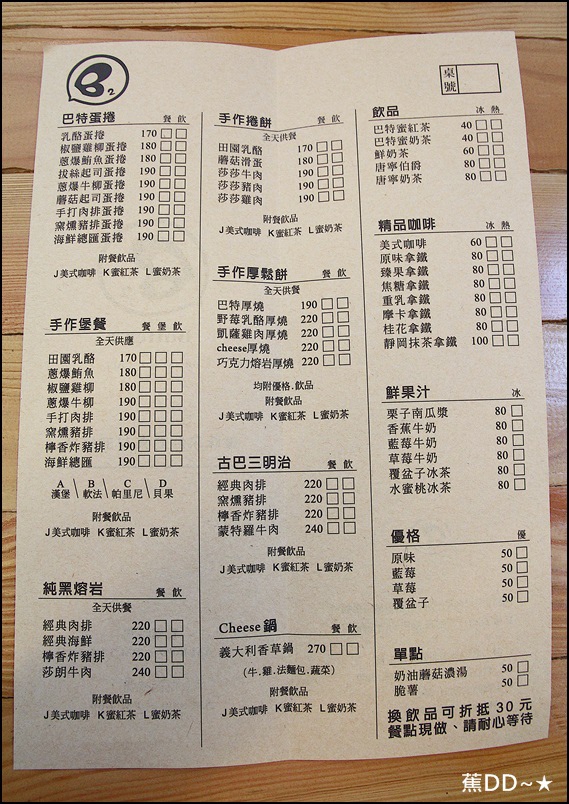 B2
桌號
巴特蛋捲 餐 飲
乳酪蛋捲 170 □ □
椒鹽雞柳蛋捲 180 □ □
蔥爆鮪魚蛋捲 180 □ □
拔絲起司蛋捲 190 □ □
蔥爆牛柳蛋捲 190 □ □
蘑菇起司蛋捲 190 □ □
手打肉排蛋捲 190 □ □
窯燻豬排蛋捲 190 □ □
海鮮總匯蛋捲 190 □ □
附餐飲品
J美式咖啡 K蜜紅茶 L蜜奶茶
手作堡餐 餐 堡 飲
全天供應
田園乳酪 170 □ □ □
蔥爆鮪魚 180 □ □ □
椒鹽雞柳 180 □ □ □
蔥爆牛柳 190 □ □ □
手打肉排 190 □ □ □
窯燻豬排 190 □ □ □
檸香炸豬排 190 □ □ □
海鮮總匯 190 □ □ □
A B C D
漢堡 \ 軟法 \ 帕里尼 \ 貝果
附餐飲品
J美式咖啡 K蜜紅茶 L蜜奶茶
純黑熔岩 餐 飲
全天供餐
經典肉排 220 □ □
經典海鮮 220 □ □
檸香炸豬排 220 □ □
莎朗牛肉 240 □ □
附餐飲品
J美式咖啡 K蜜紅茶 L蜜奶茶
手作捲餅 餐 飲
全天供餐
田園乳酪 170 □ □
蘑菇滑蛋 180 □ □
莎莎牛肉 190 □ □
莎莎豬肉 190 □ □
莎莎雞肉 190 □ □
附餐飲品
J美式咖啡 K蜜紅茶 L蜜奶茶
手作厚鬆餅 餐 飲
全天供餐
巴特厚燒 190 □ □
野莓乳酪厚燒 220 □ □
凱薩雞肉厚燒 220 □ □
cheese厚燒 220 □ □
巧克力熔岩厚燒 220 □ □
均附優格.飲品
附餐飲品
J美式咖啡 K蜜紅茶 L蜜奶茶
古巴三明治 餐 飲
經典肉排 220 □ □
窯燻豬排 220 □ □
檸香炸豬排 220 □ □
蒙特羅牛肉 240 □ □
附餐飲品
J美式咖啡 K蜜紅茶 L蜜奶茶
Cheese鍋 餐 飲
義大利香草鍋 270 □ □
(牛.雞.法麵包.蔬菜)
附餐飲品
J美式咖啡 K蜜紅茶 L蜜奶茶
飲品 冰 熱
巴特蜜紅茶 40 □ □
巴特蜜奶茶 40 □ □
鮮奶茶 60 □ □
唐寧伯爵 80 □ □
唐寧奶茶 80 □ □
精品咖啡 冰 熱
美式咖啡 60 □ □
原味拿鐵 80 □ □
臻果拿鐵 80 □ □
焦糖拿鐵 80 □ □
重乳拿鐵 80 □ □
摩卡拿鐵 80 □ □
桂花拿鐵 80 □ □
靜岡抹茶拿鐵 100 □ □
鮮果汁 冰
栗子南瓜漿 80 □
香蕉牛奶 80 □
藍莓牛奶 80 □
草莓牛奶 80 □
覆盆子冰茶 80 □
水蜜桃冰茶 80 □
優格 優
原味 50 □
藍莓 50 □
草莓 50 □
覆盆子 50 □
單點
奶油蘑菇濃湯 50 □
脆薯 50 □
換飲品可折抵30元
餐點現做、請耐心等待
蕉DD~★